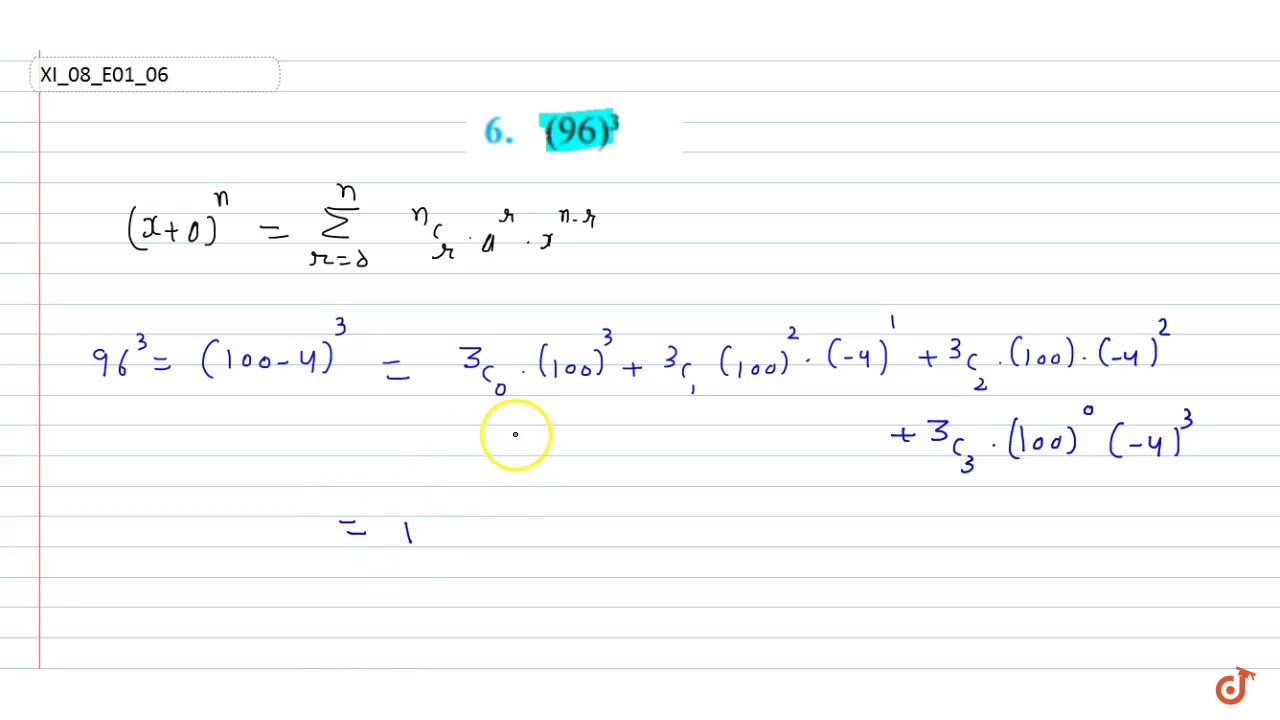 XI_08_E01_06
6. (96)³
(x+a)ⁿ = Σⁿᵣ₌₀ ⁿCᵣ · aʳ · xⁿ⁻ʳ
96³ = (100-4)³ = 3C₀ · (100)³ + 3C₁ (100)² · (-4)¹ + 3C₂ · (100) · (-4)²
+ 3C₃ · (100)⁰ (-4)³
= 1